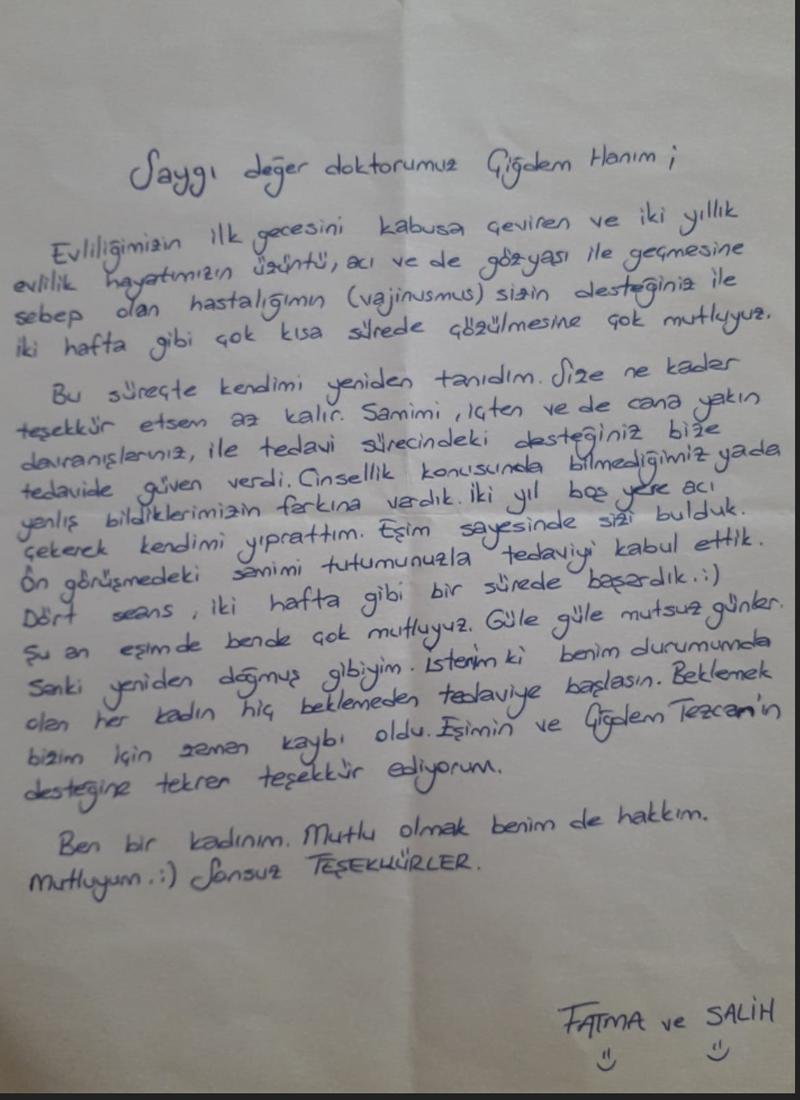 Saygı değer doktorumuz Çiğdem Hanım ;
Evliliğimizin ilk gecesini kabusa çeviren ve iki yıllık
evlilik hayatımızın üzüntü, acı ve de gözyaşı ile geçmesine
sebep olan hastalığımın (vajinusmus) sizin desteğiniz ile
iki hafta gibi çok kısa sürede çözülmesine çok mutluyuz.
Bu süreçte kendimi yeniden tanıdım. Size ne kadar
teşekkür etsem az kalır. Samimi, içten ve de cana yakın
davranışlarınız, ile tedavi sürecindeki desteğiniz bize
tedavide güven verdi. Cinsellik konusunda bilmediğimiz yada
yanlış bildiklerimizin farkına vardık. İki yıl boş yere acı
çekerek kendimi yıprattım. Eşim sayesinde sizi bulduk.
Ön görüşmedeki samimi tutumunuzla tedaviyi kabul ettik.
Dört seans, iki hafta gibi bir sürede başardık. :)
Şu an eşimde bende çok mutluyuz. Güle güle mutsuz günler.
Sanki yeniden doğmuş gibiyim. İsterim ki benim durumumda
olan her kadın hiç beklemeden tedaviye başlasın. Beklemek
bizim için zaman kaybı oldu. Eşimin ve Çiğdem Tezcan'ın
desteğine tekrar teşekkür ediyorum.
Ben bir kadınım. Mutlu olmak benim de hakkım.
Mutluyum. :) Sonsuz TEŞEKKÜRLER.
FATMA ve SALİH